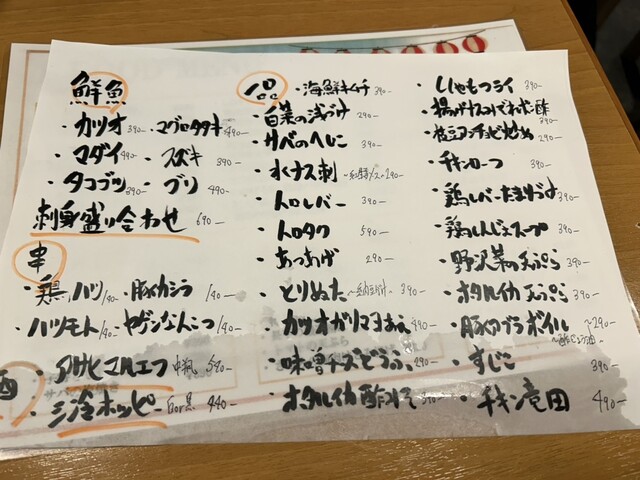 鮮魚
・カツオ 390- ・マグロタタキ 490-
・マダイ 490- ・スズキ 390-
・タコブツ 390- ・ブリ 490-
刺身盛り合わせ 690-
串
・鶏ハツ 140- ・豚カシラ 140-
・ハツモト 140- ・ヤゲンなんこつ 140-
酒
・アサヒマルエフ 中瓶 590-
・三冷ホッピー 白or黒 440-
一品
・海鮮キムチ 390-
・白菜の浅づけ 290-
・サバのへしこ 390-
・水ナス刺 290-
・トロレバー 390-
・トロタク 590-
・あつあげ 290-
・とりぬた 390-
・カツオガリマヨあえ 490-
・味噌チーズどうふ 290-
・ホタルイカ酢みそ
・ししゃもフライ 390-
・揚げナス 390-
・枝豆アンチョビ炒め 290-
・チキンカツ 390-
・鶏レバー 390-
・鶏しんじょスープ 390-
・野沢菜の天ぷら 390-
・ホタルイカ天ぷら 390-
・豚 ボイル 290-
・すじこ 390-
・チキン竜田 490-